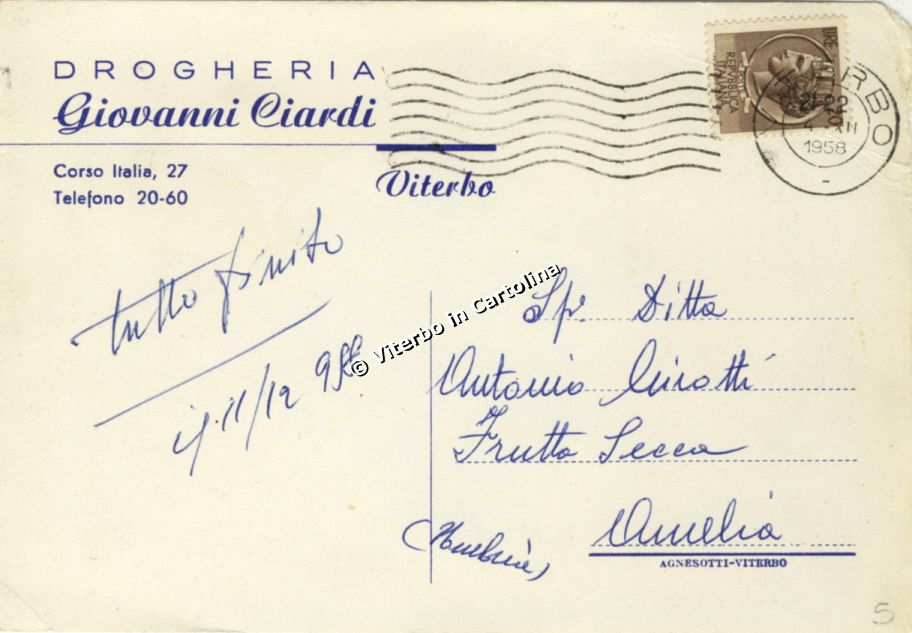 DROGHERIA
Giovanni Ciardi
Corso Italia, 27
Telefono 20-60
Viterbo
LIRE
REPVBBLICA
ITALIANA
VITERBO
21-22
4 XII
1958
tutto finito
il 11/12 958
© Viterbo in Cartolina
Sp. Ditta
Antonio
Frutta Secca
Amelia
(Umbria)
AGNESOTTI-VITERBO
5